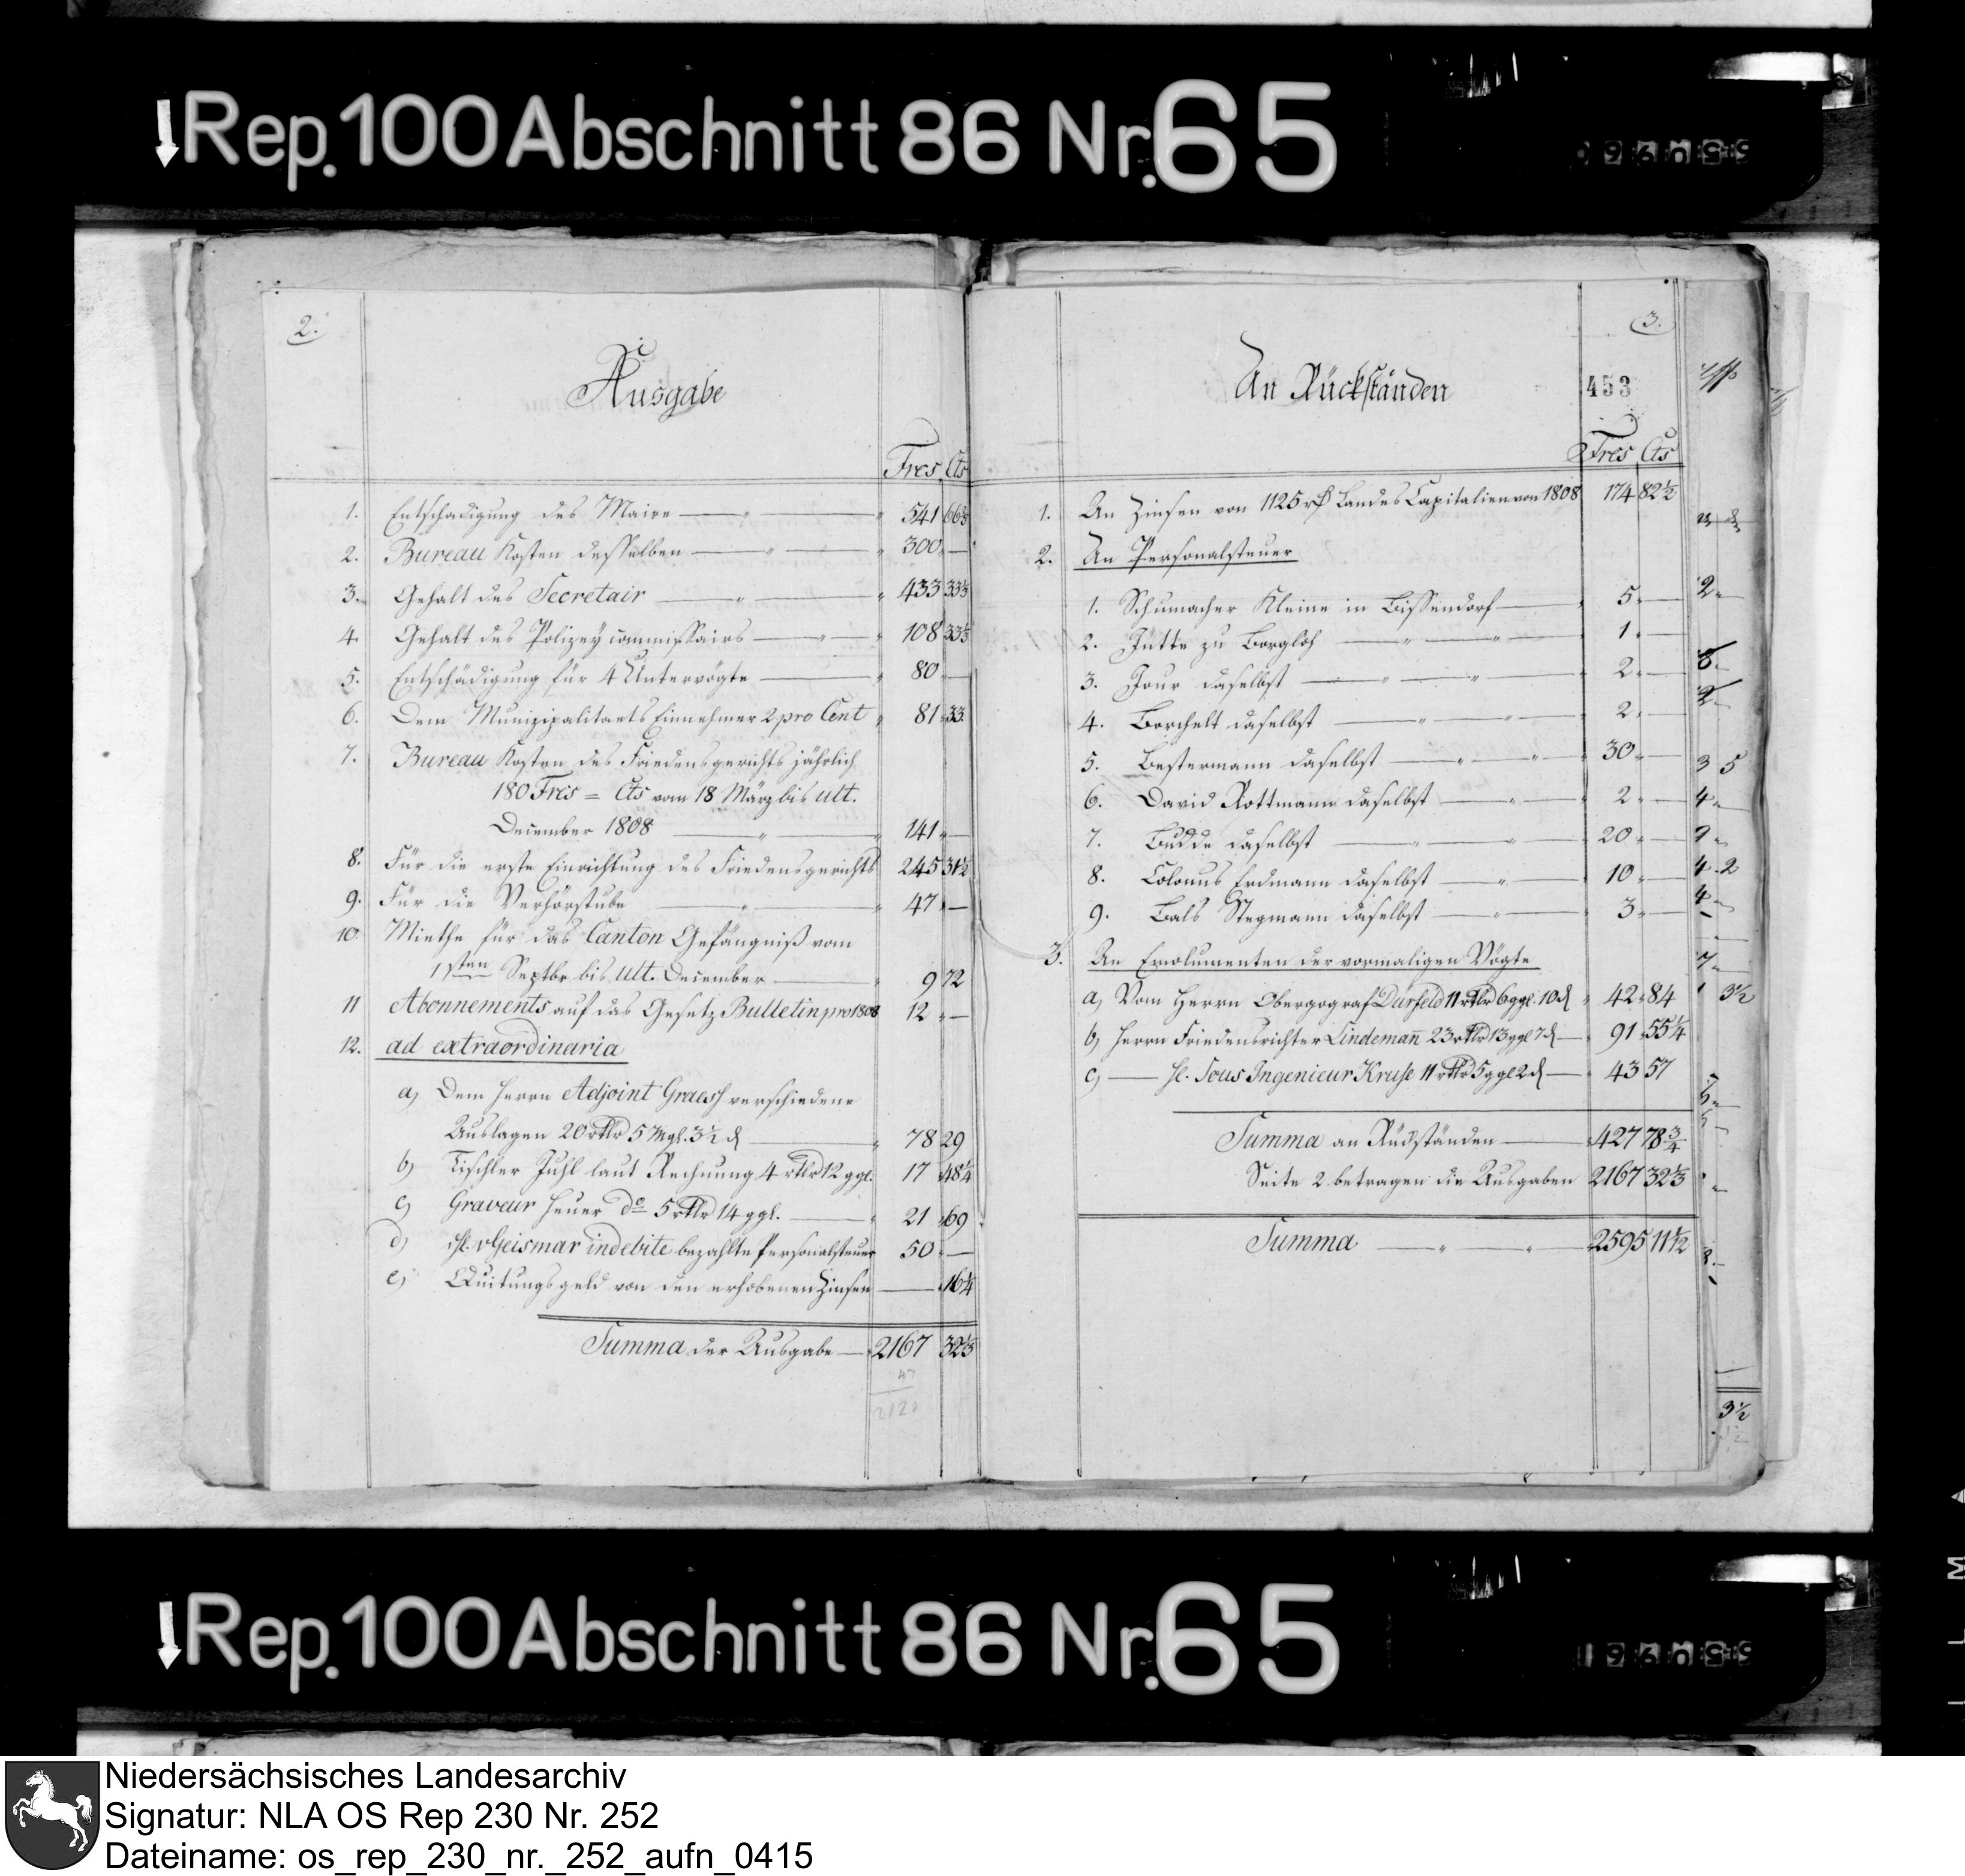 Rep. 100 Abschnitt 86 Nr. 65
2.
Ausgabe
Frcs Cts
1. Entschädigung des Maire 541 66⅔
2. Bureau Kosten desselben 300 —
3. Gehalt des Secretair 433 33⅓
4. Gehalt des Polizeycommissairs 108 33⅓
5. Entschädigung für 4 Untervögte 80 —
6. Dem Munizipalitaets Einnehmer 2 pro Cent 81 33
7. Bureau Kosten des Friedensgerichts jährlich
180 Frcs = Cts vom 18 März bis ult.
December 1808 141 —
8. Für die erste Einrichtung des Friedensgerichts 245 31½
9. Für die Verhörstube 47 —
10. Miethe für das Canton Gefängniß vom
1sten Septbr bis ult. December 9 72
11 Abonnements auf das Gesetz Bulletin pro 1808 12 —
12. ad extraordinaria
a) Dem Herrn Adjoint Graess verschiedene
Auslagen 20 rtlr 5 Mgl. 3½ d 78 29
b) Tischler Juhl laut Rechnung 4 rtlr 12 ggl. 17 48¼
c) Graveur Heuer do 5 rtlr 14 ggl. 21 69
d) H. v Geismar indebite bezahlte Personalsteuer 50 —
e) Quitungsgeld von den erhobenen Zinsen — 16¼
Summa der Ausgabe 2167 32⅓
47
2120
3.
An Rückständen
453
Frcs Cts
1. An Zinsen von 1125 rt Landes Capitalien von 1808 174 82½
2. An Personalsteuer
1. Schumacher Kleine in Bissendorf 5 —
2. Jütte zu Borgloh 1 —
3. Jour daselbst 2 —
4. Borchelt daselbst 2 —
5. Bestermann daselbst 30 —
6. David Rottmann daselbst 2 —
7. Budde daselbst 20 —
8. Colonus Erdmann daselbst 10 —
9. Bals Stegmann daselbst 3 —
3. An Emolumenten der vormaligen Vögte
a) Vom Herrn Obergograf Dürfeld 11 rtlr 6 ggl. 10 d 42 84
b) Herrn Friedensrichter Lindemañ 23 rtlr 13 ggl 7 d 91 55¼
c) — H. Sous Ingenieur Kruse 11 rtlr 5 ggl 2 d 43 57
Summa an Rückständen 427 78¾
Seite 2 betragen die Ausgaben 2167 32⅓
Summa 2595 11½
Rep. 100 Abschnitt 86 Nr. 65
Niedersächsisches Landesarchiv
Signatur: NLA OS Rep 230 Nr. 252
Dateiname: os_rep_230_nr._252_aufn_0415